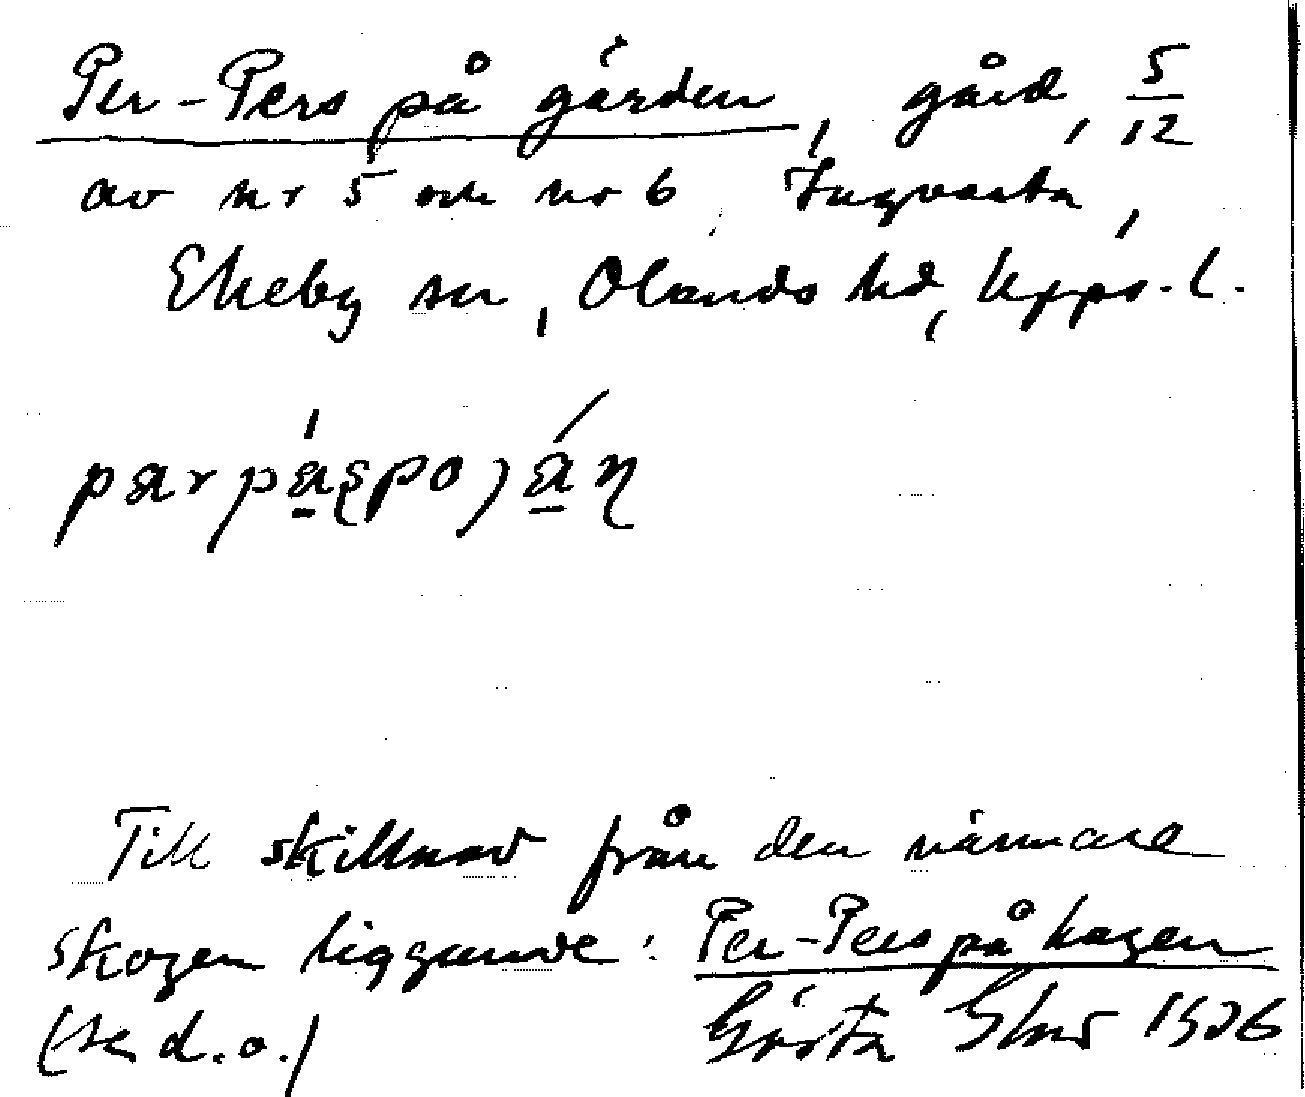 Per-Pers på gärden, gård, 5/12
av nr 5 och nr 6 Ingvasta,
Ekeby sn, Olands hd, Upps. l.
Till skillnad från den närmare
skogen liggande: Per-Pers på hagen
(se d.o.) Gösta 1926